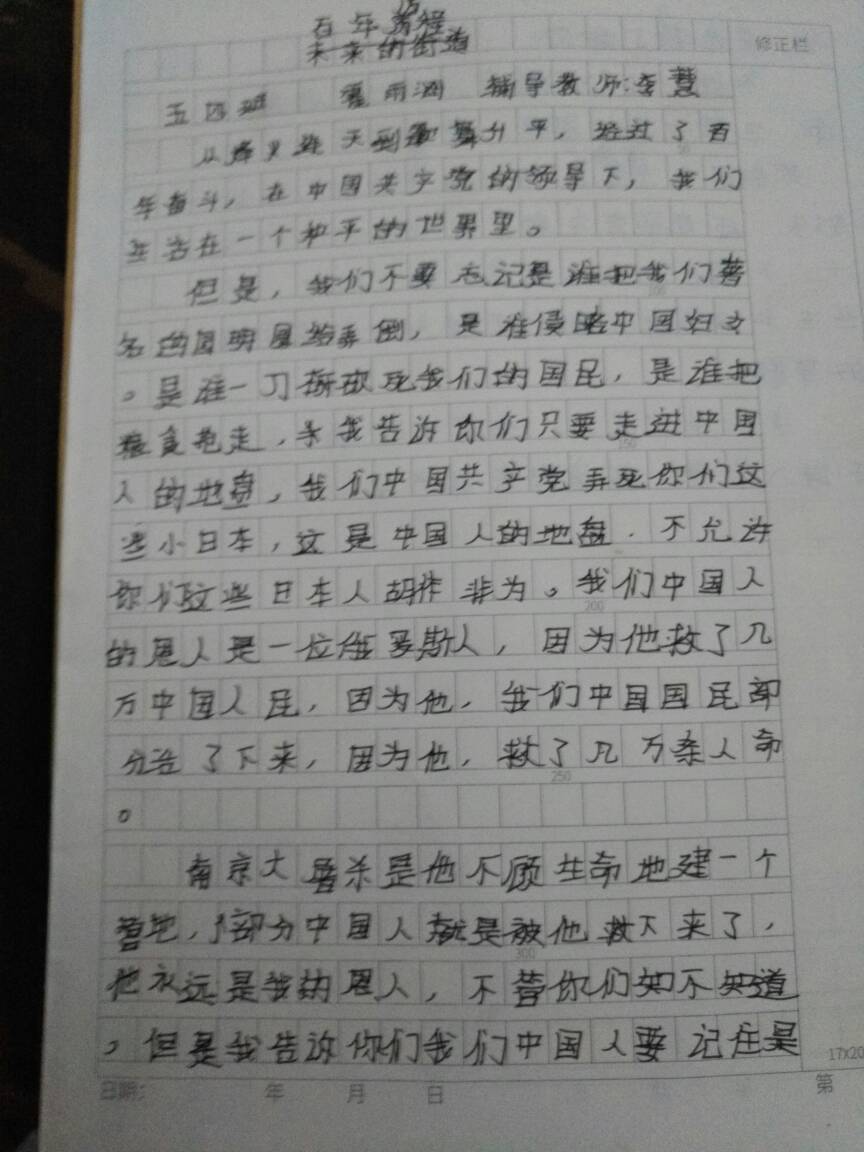 百年荣耀
未来的街道
修正栏
五四班 雨涵 辅导教师:李慧
从烽火连天到歌舞升平，经过了百
年奋斗，在中国共产党的领导下，我们
生活在一个和平的世界里。
但是，我们不要忘记是谁把我们著
名的圆明园给弄倒，是谁侵略中国妇女
。是谁一刀捅砍死我们的国民，是谁把
粮食抢走，来我告诉你们只要走进中国
人的地盘，我们中国共产党弄死你们这
些小日本，这是中国人的地盘．不允许
你们这些日本人胡作非为。我们中国人
的恩人是一位俄罗斯人，因为他救了几
万中国人民，因为他，我们中国国民部
分活了下来，因为他，救了几万条人命
。
250
南京大屠杀是他不顾生命地建一个
营地，部分中国人就是被他救下来了，
300
他永远是我的恩人，不管你们知不知道
。但是我告诉你们我们中国人要记住是
17X20
日期: 年 月 日
第